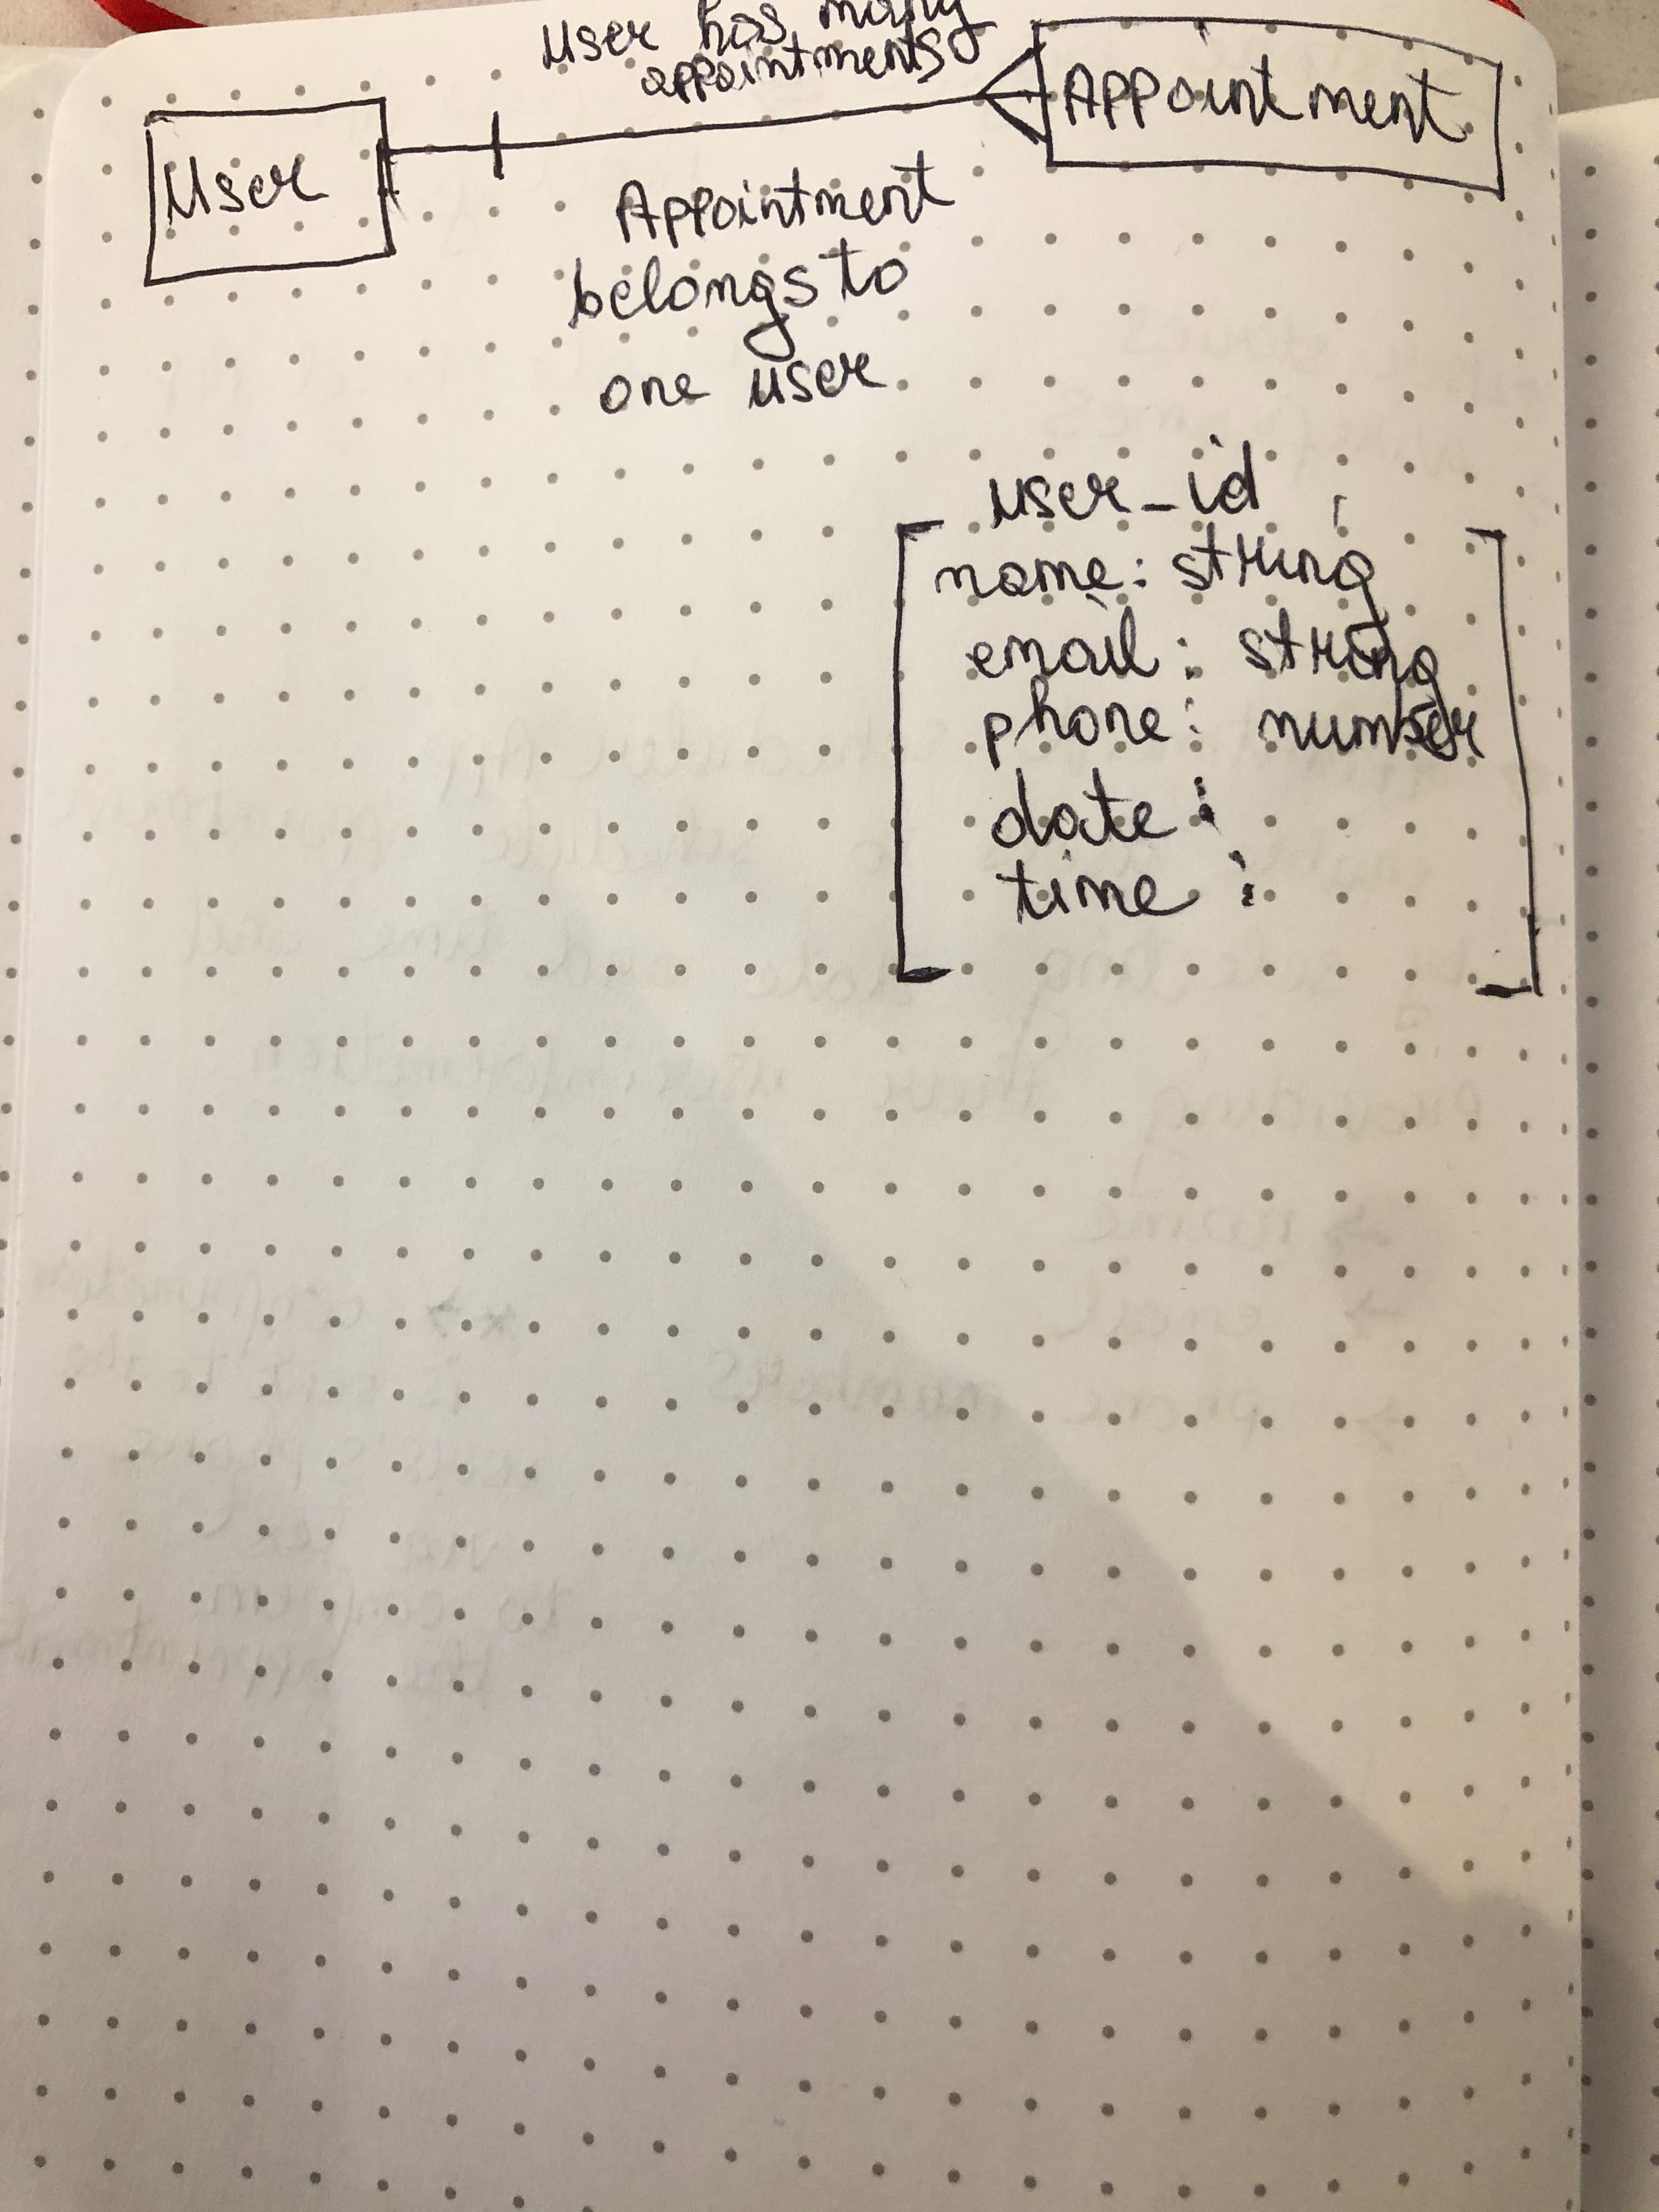 User has many
appointments
User
Appointment
Appointment
belongs to
one user
user_id :
name: string
email: string
phone: number
date:
time: